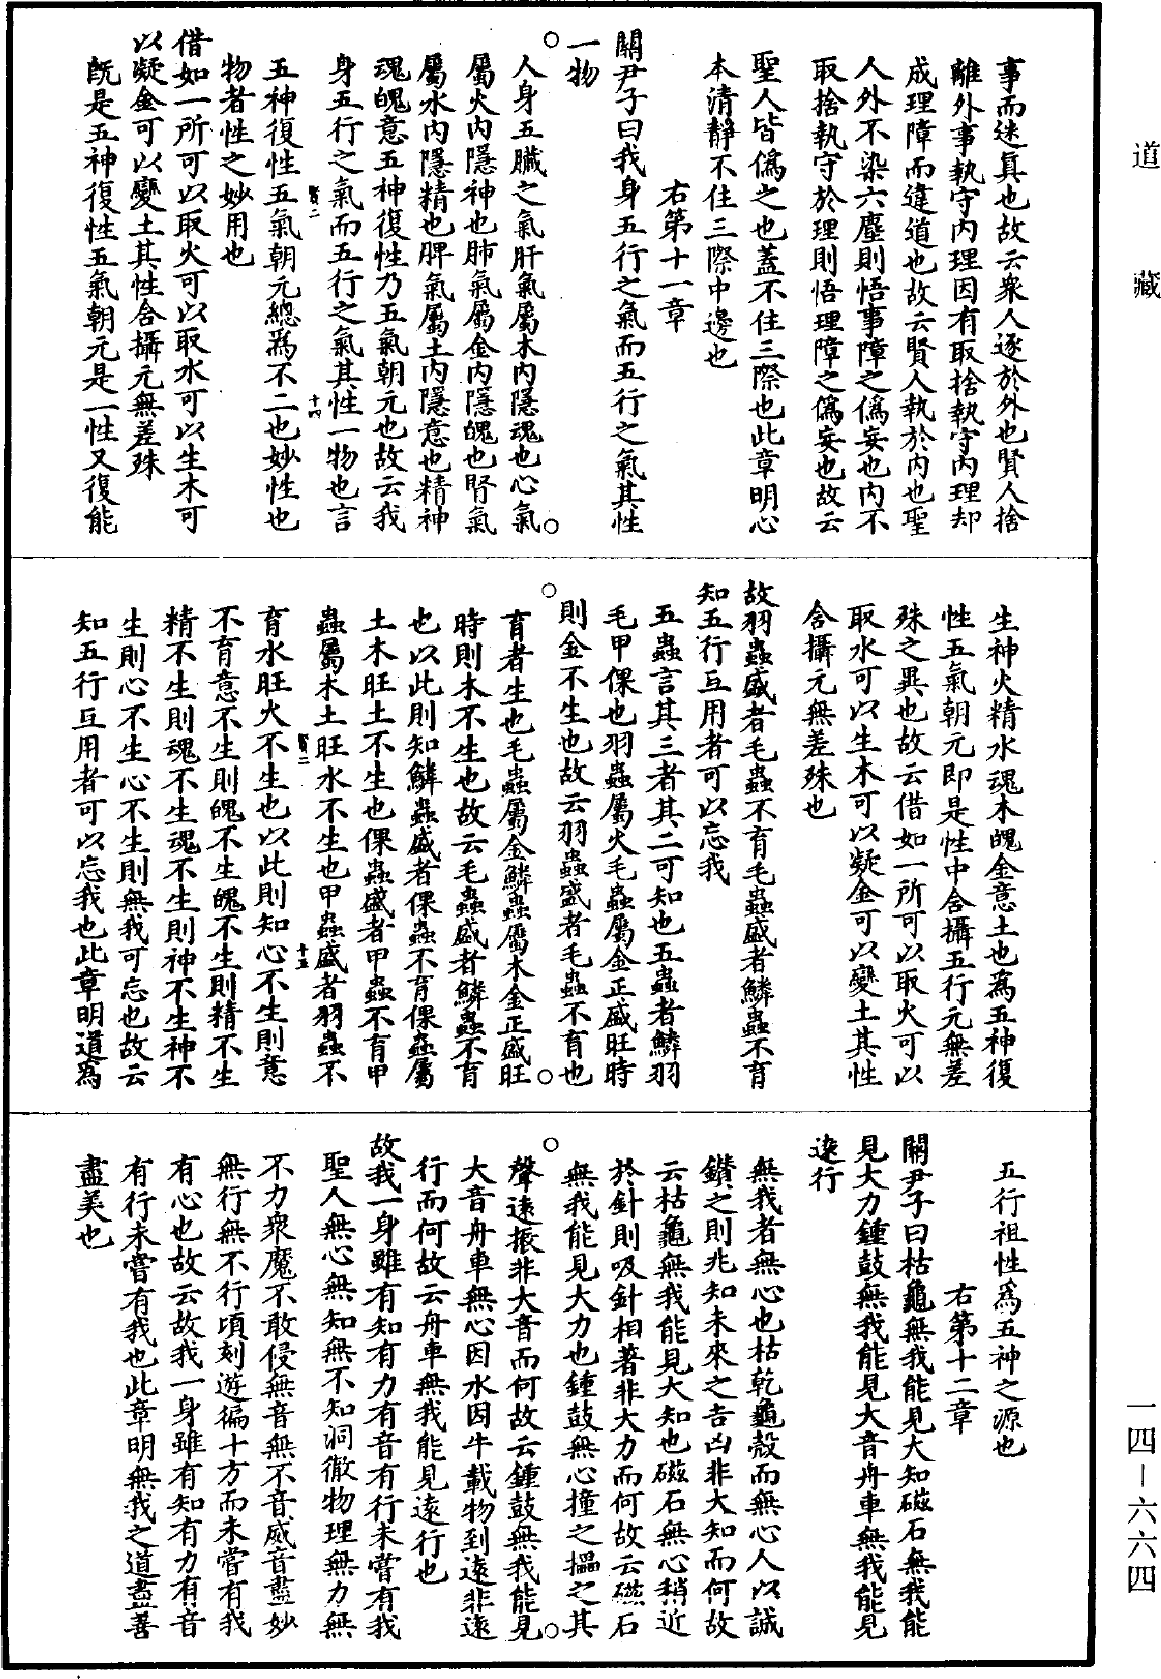 道藏
事而迷真也故云衆人逐於外也賢人捨
離外事執守內理因有取捨執守內理却
成理障而違道也故云賢人執於內也聖
人外不染六塵則悟事障之僞妄也內不
取捨執守於理則悟理障之僞妄也故云
聖人皆僞之也蓋不住三際也此章明心
本清靜不住三際中邊也
右第十一章
關尹子曰我身五行之氣而五行之氣其性
一物
人身五臟之氣肝氣屬木內隱魂也心氣
屬火內隱神也肺氣屬金內隱魄也腎氣
屬水內隱精也脾氣屬土內隱意也精神
魂魄意五神復性乃五氣朝元也故云我
身五行之氣而五行之氣其性一物也言
賢二
十四
五神復性五氣朝元總爲不二也妙性也
物者性之妙用也
借如一所可以取火可以取水可以生木可
以凝金可以變土其性含攝元無差殊
旣是五神復性五氣朝元是一性又復能
生神火精水魂木魄金意土也爲五神復
性五氣朝元即是性中含攝五行元無差
殊之異也故云借如一所可以取火可以
取水可以生木可以凝金可以變土其性
含攝元無差殊也
故羽蟲盛者毛蟲不育毛蟲盛者鱗蟲不育
知五行互用者可以忘我
五蟲言其三者其二可知也五蟲者鱗羽
毛甲倮也羽蟲屬火毛蟲屬金正盛旺時
則金不生也故云羽蟲盛者毛蟲不育也
育者生也毛蟲屬金鱗蟲屬木金正盛旺
時則木不生也故云毛蟲盛者鱗蟲不育
也以此則知鱗蟲盛者倮蟲不育倮蟲屬
土木旺土不生也倮蟲盛者甲蟲不育甲
蟲屬水土旺水不生也甲蟲盛者羽蟲不
賢二
十五
育水旺火不生也以此則知心不生則意
不育意不生則魄不生魄不生則精不生
精不生則魂不生魂不生則神不生神不
生則心不生心不生則無我可忘也故云
知五行互用者可以忘我也此章明道爲
五行祖性爲五神之源也
右第十二章
關尹子曰枯龜無我能見大知磁石無我能
見大力鍾鼓無我能見大音舟車無我能見
遠行
無我者無心也枯乾龜殼而無心人以誠
鑽之則兆知未來之吉凶非大知而何故
云枯龜無我能見大知也磁石無心稍近
於針則吸針相著非大力而何故云磁石
無我能見大力也鍾鼓無心撞之擂之其
聲遠振非大音而何故云鍾鼓無我能見
大音舟車無心因水因牛載物到遠非遠
行而何故云舟車無我能見遠行也
故我一身雖有知有力有音有行未嘗有我
聖人無心無知無不知洞徹物理無力無
不力衆魔不敢侵無音無不音威音盡妙
無行無不行頃刻遊徧十方而未嘗有我
有心也故云故我一身雖有知有力有音
有行未嘗有我也此章明無我之道盡善
盡美也
一四—六六四